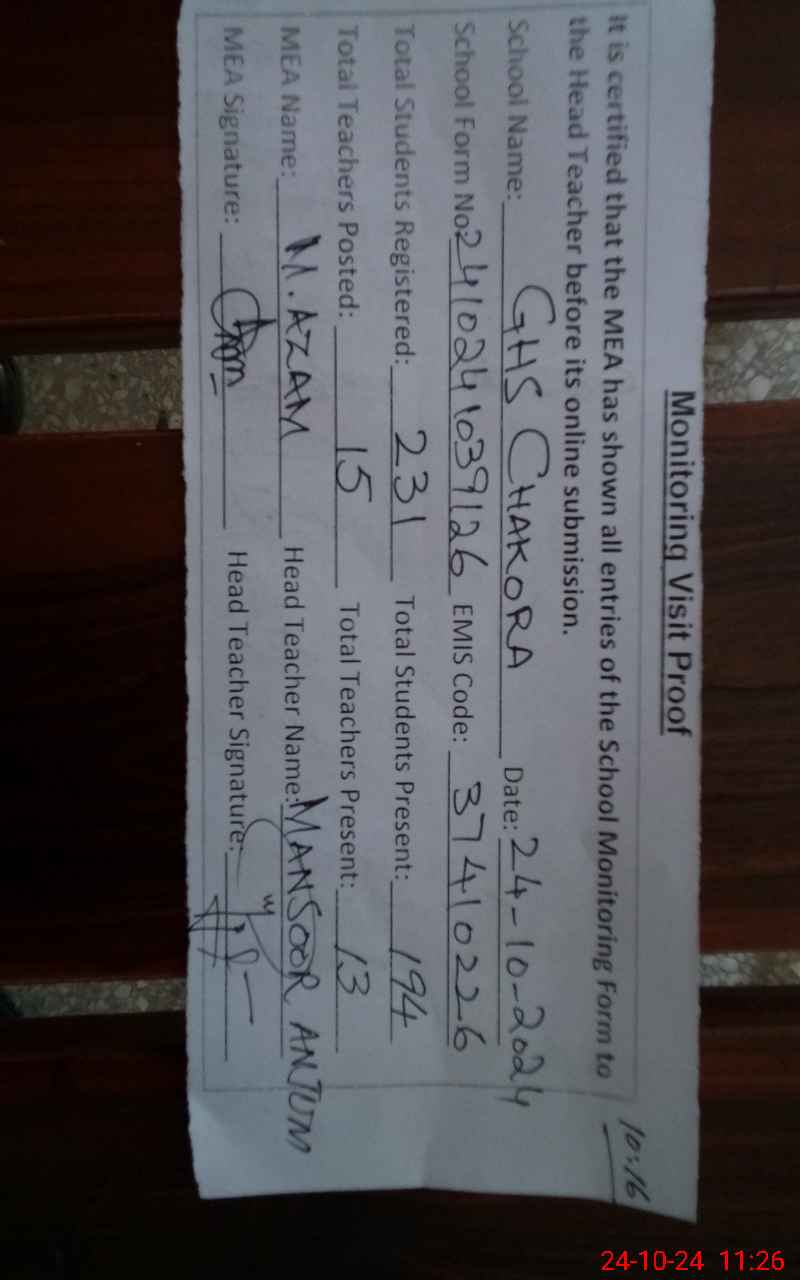 10:16
Monitoring Visit Proof
It is certified that the MEA has shown all entries of the School Monitoring Form to
the Head Teacher before its online submission.
School Name: GHS CHAKORA Date: 24-10-2024
School Form No: 2410241039126 EMIS Code: 37410226
Total Students Registered: 231 Total Students Present: 194
Total Teachers Posted: 15 Total Teachers Present: 13
MEA Name: M.AZAM Head Teacher Name: MANSOOR ANJUM
MEA Signature: Head Teacher Signature:
24-10-24 11:26